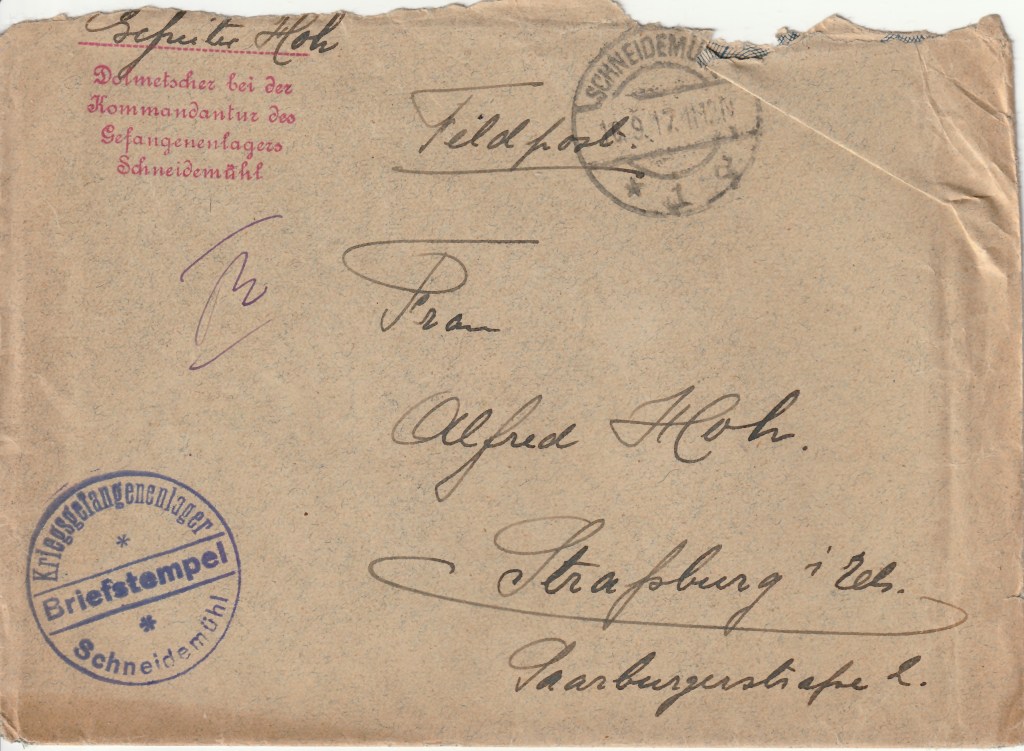 Gefreiter Hoh
Dolmetscher bei der
Kommandantur des
Gefangenenlagers
Schneidemühl
Feldpost.
SCHNEIDEMÜ
.9.17.
* 1 d
Frau
Alfred Hoh.
Straßburg i Els.
Saarburgerstraße 2.
Kriegsgefangenenlager
*
Briefstempel
*
Schneidemühl